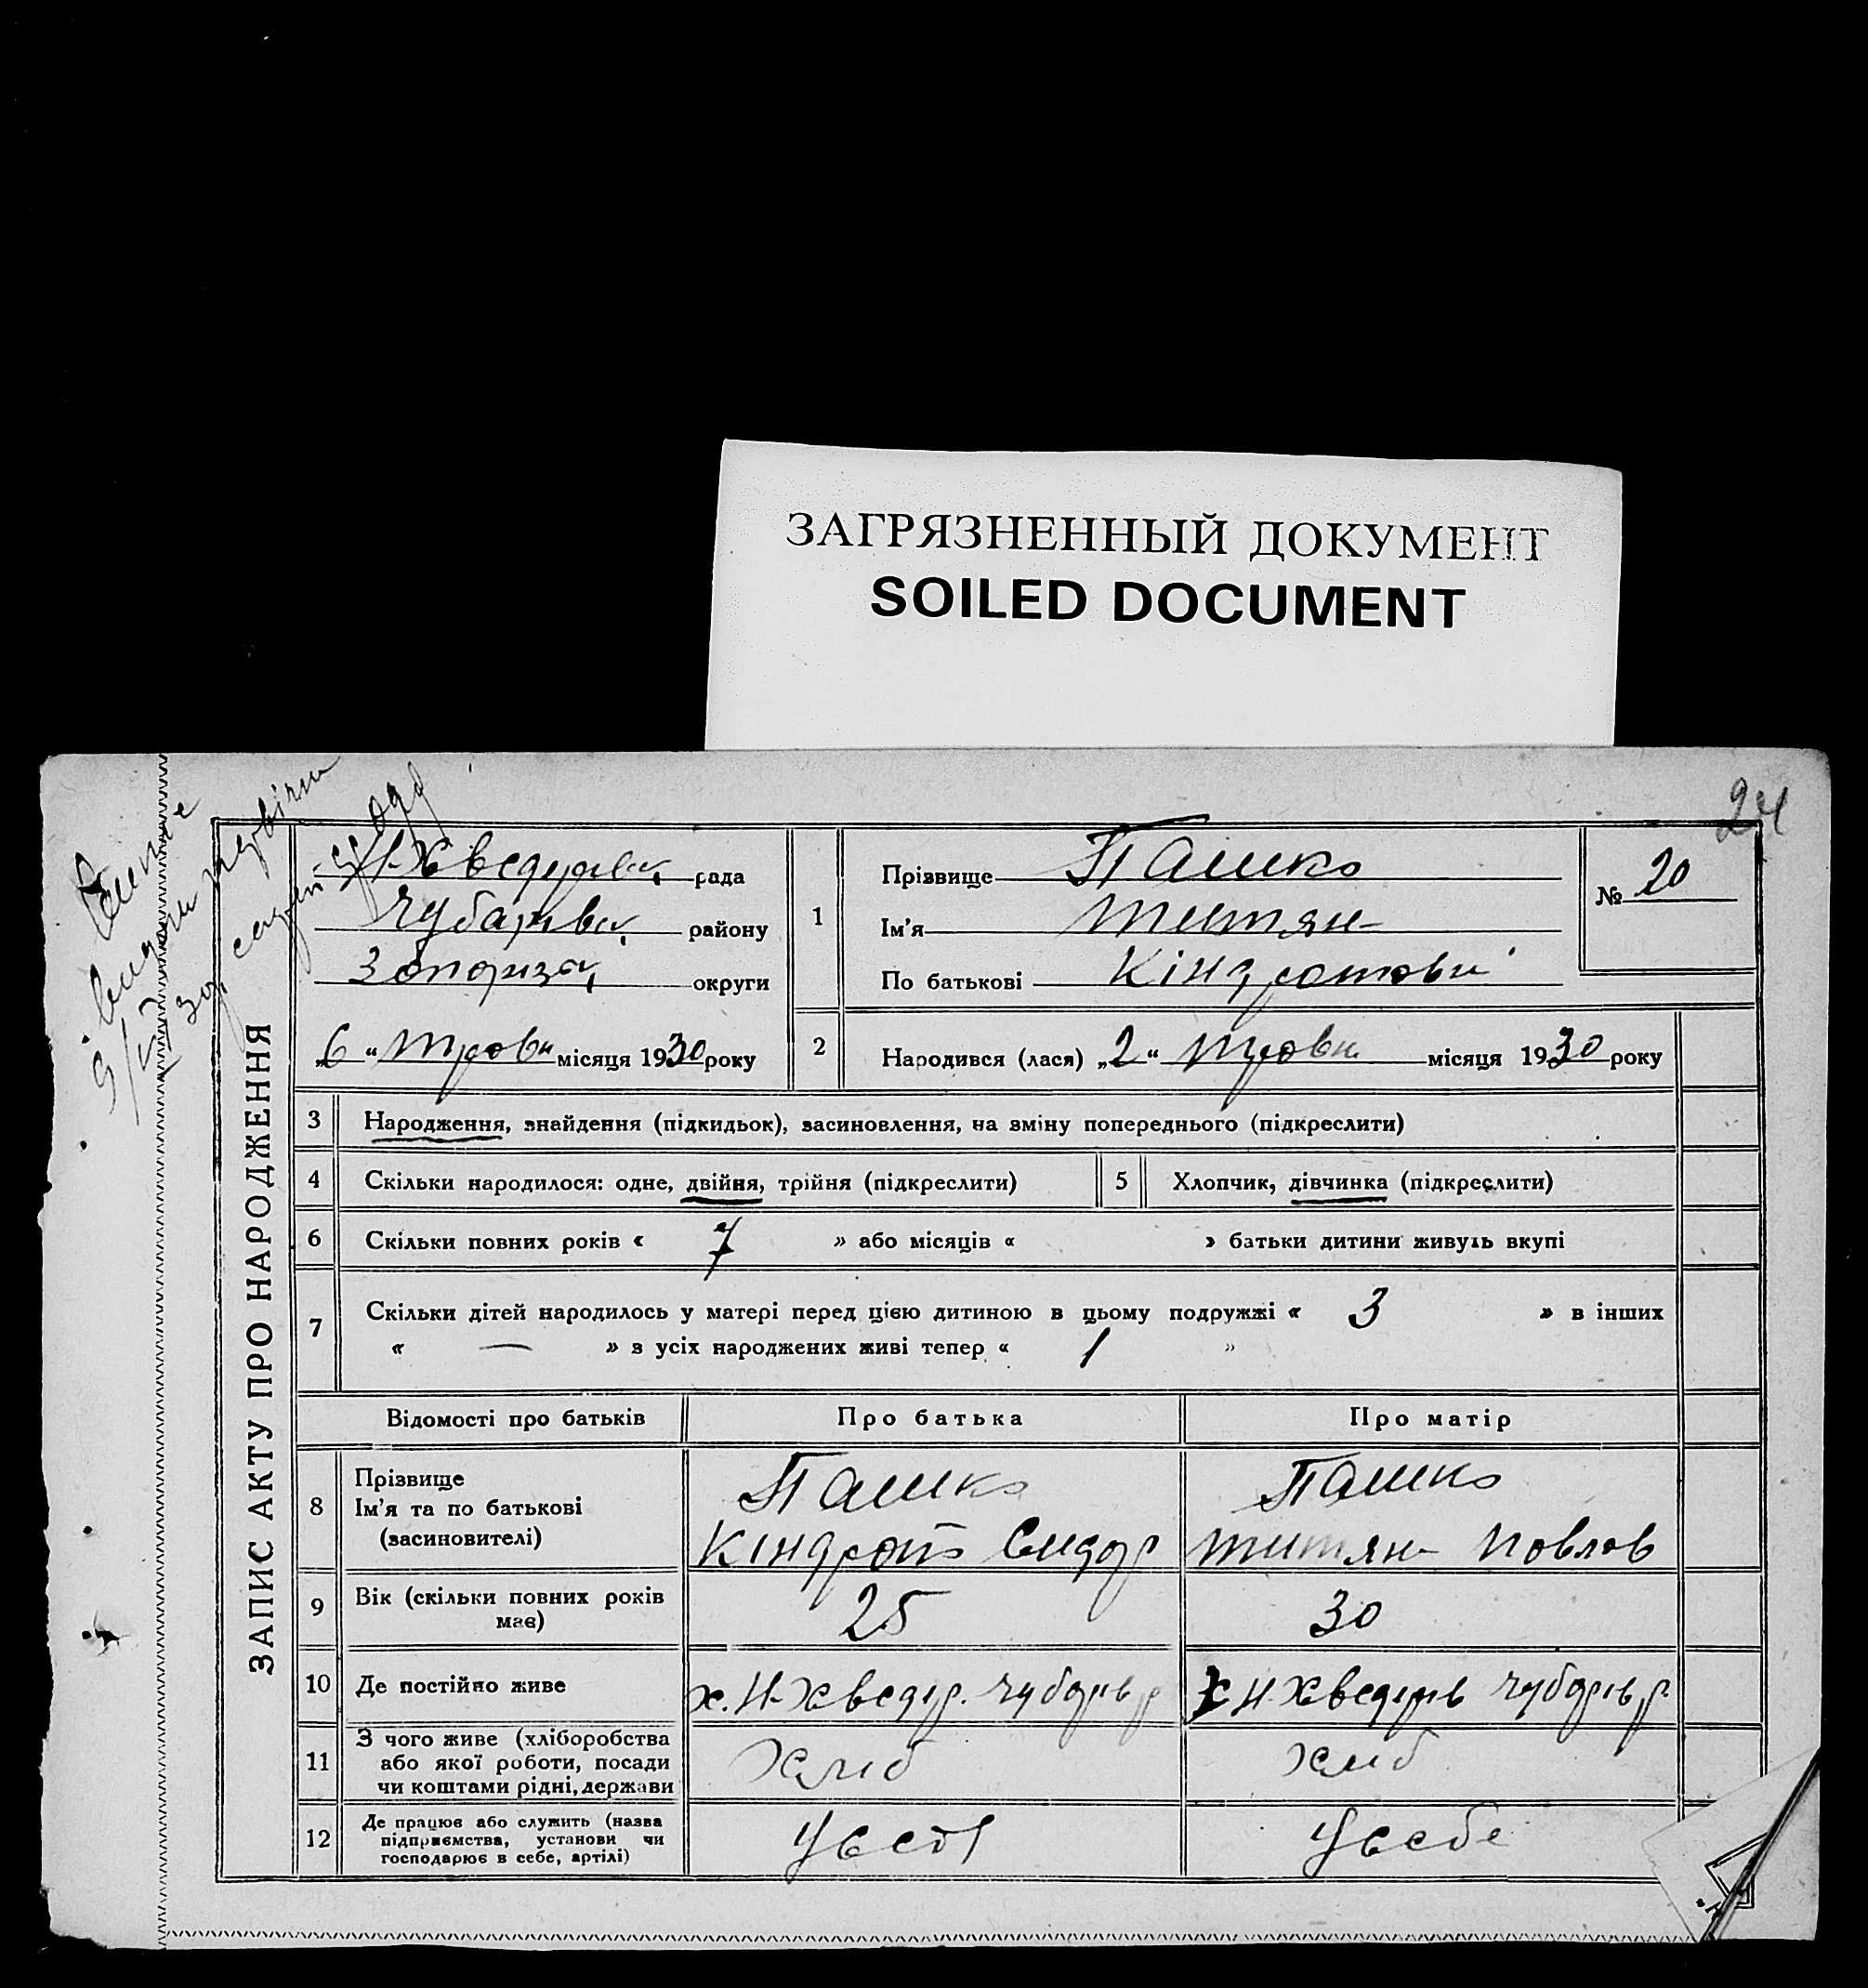 ЗАГРЯЗНЕННЫЙ ДОКУМЕНТ
SOILED DOCUMENT
24
ЗАПИС АКТУ ПРО НАРОДЖЕННЯ
Н-Хведерівк, рада
Чубарівк, району
Запоризк, округи
„6“ травн місяця 1930 року
1
Прізвище Пашко
Ім'я Титян
По батькові Кіндратовн
№ 20
2 Народився (лася) „2“ травн місяця 1930 року
3 Народження, знайдення (підкидьок), засиновлення, на зміну попереднього (підкреслити)
4 Скільки народилося: одне, двійня, трійня (підкреслити)
5 Хлопчик, дівчинка (підкреслити)
6 Скільки повних років « 7 » або місяців « » батьки дитини живуть вкупі
7 Скільки дітей народилось у матері перед цією дитиною в цьому подружжі « 3 » в інших
« — » з усіх народжених живі тепер « 1 »
Відомості про батьків Про батька Про матір
8 Прізвище
Ім'я та по батькові
(засиновителі)
Пашко
Кіндрат Сидор
Пашко
Титян Повлов
9 Вік (скільки повних років
має)
25 30
10 Де постійно живе
х. Н-Хведер. Чубарів, р
Х Н. Хведерів Чубарів, р.
11 З чого живе (хліборобства
або якої роботи, посади
чи коштами рідні, держави
Хліб хліб
12 Де працює або служить (назва
підприємства, установи чи
господарює в себе, артілі)
У себе У себе